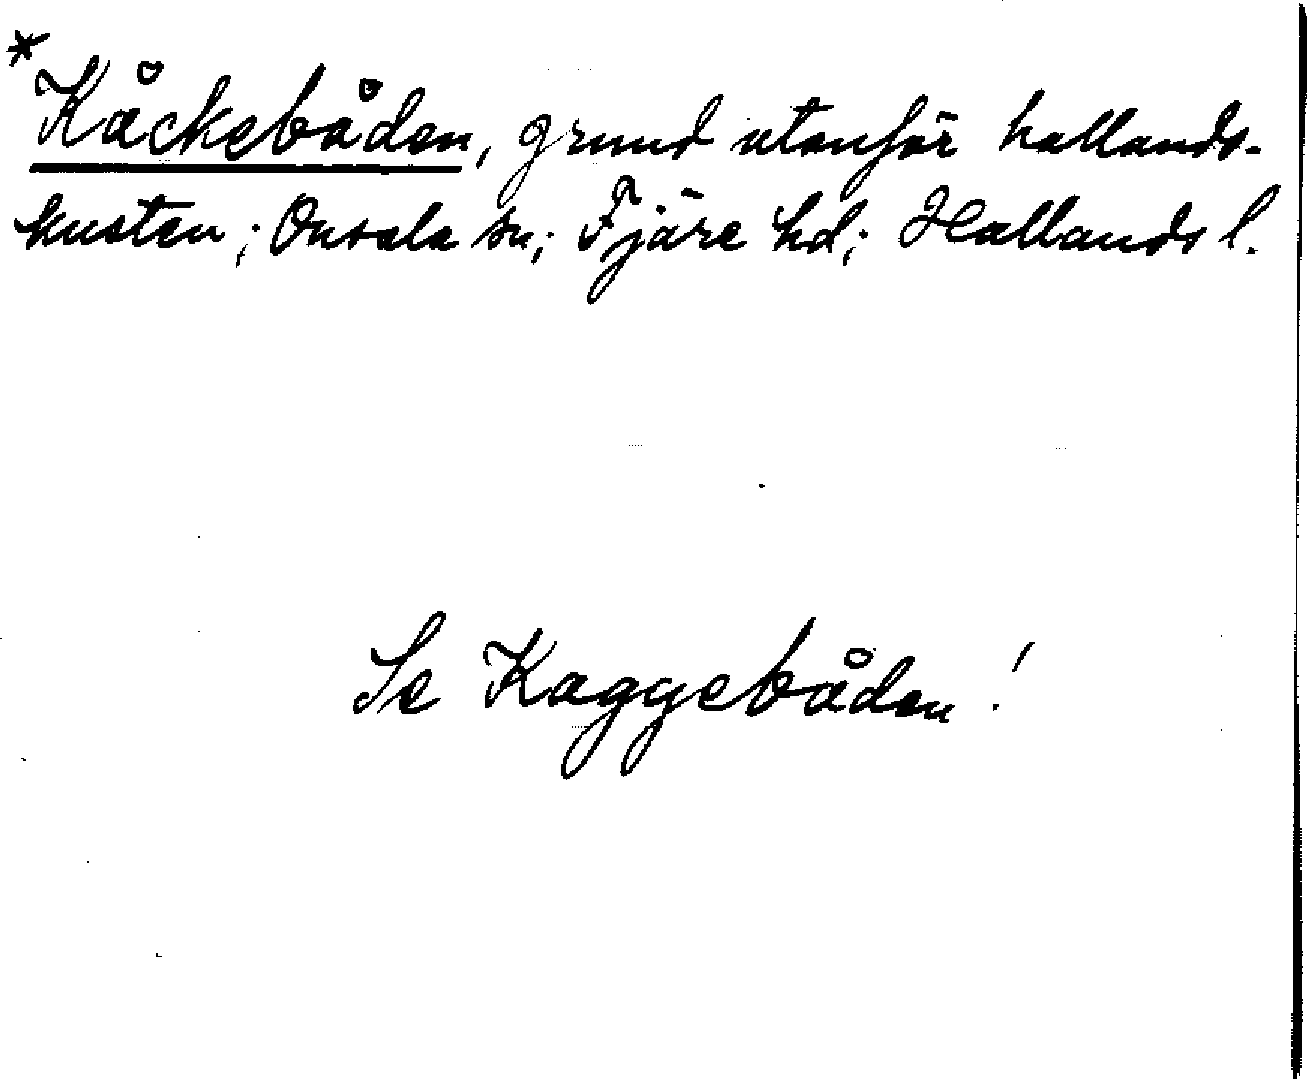 *Kåckebåden, grund utanför hallands-
kusten; Onsala sn; Fjäre hd; Hallands l.
Se Kaggebåden!